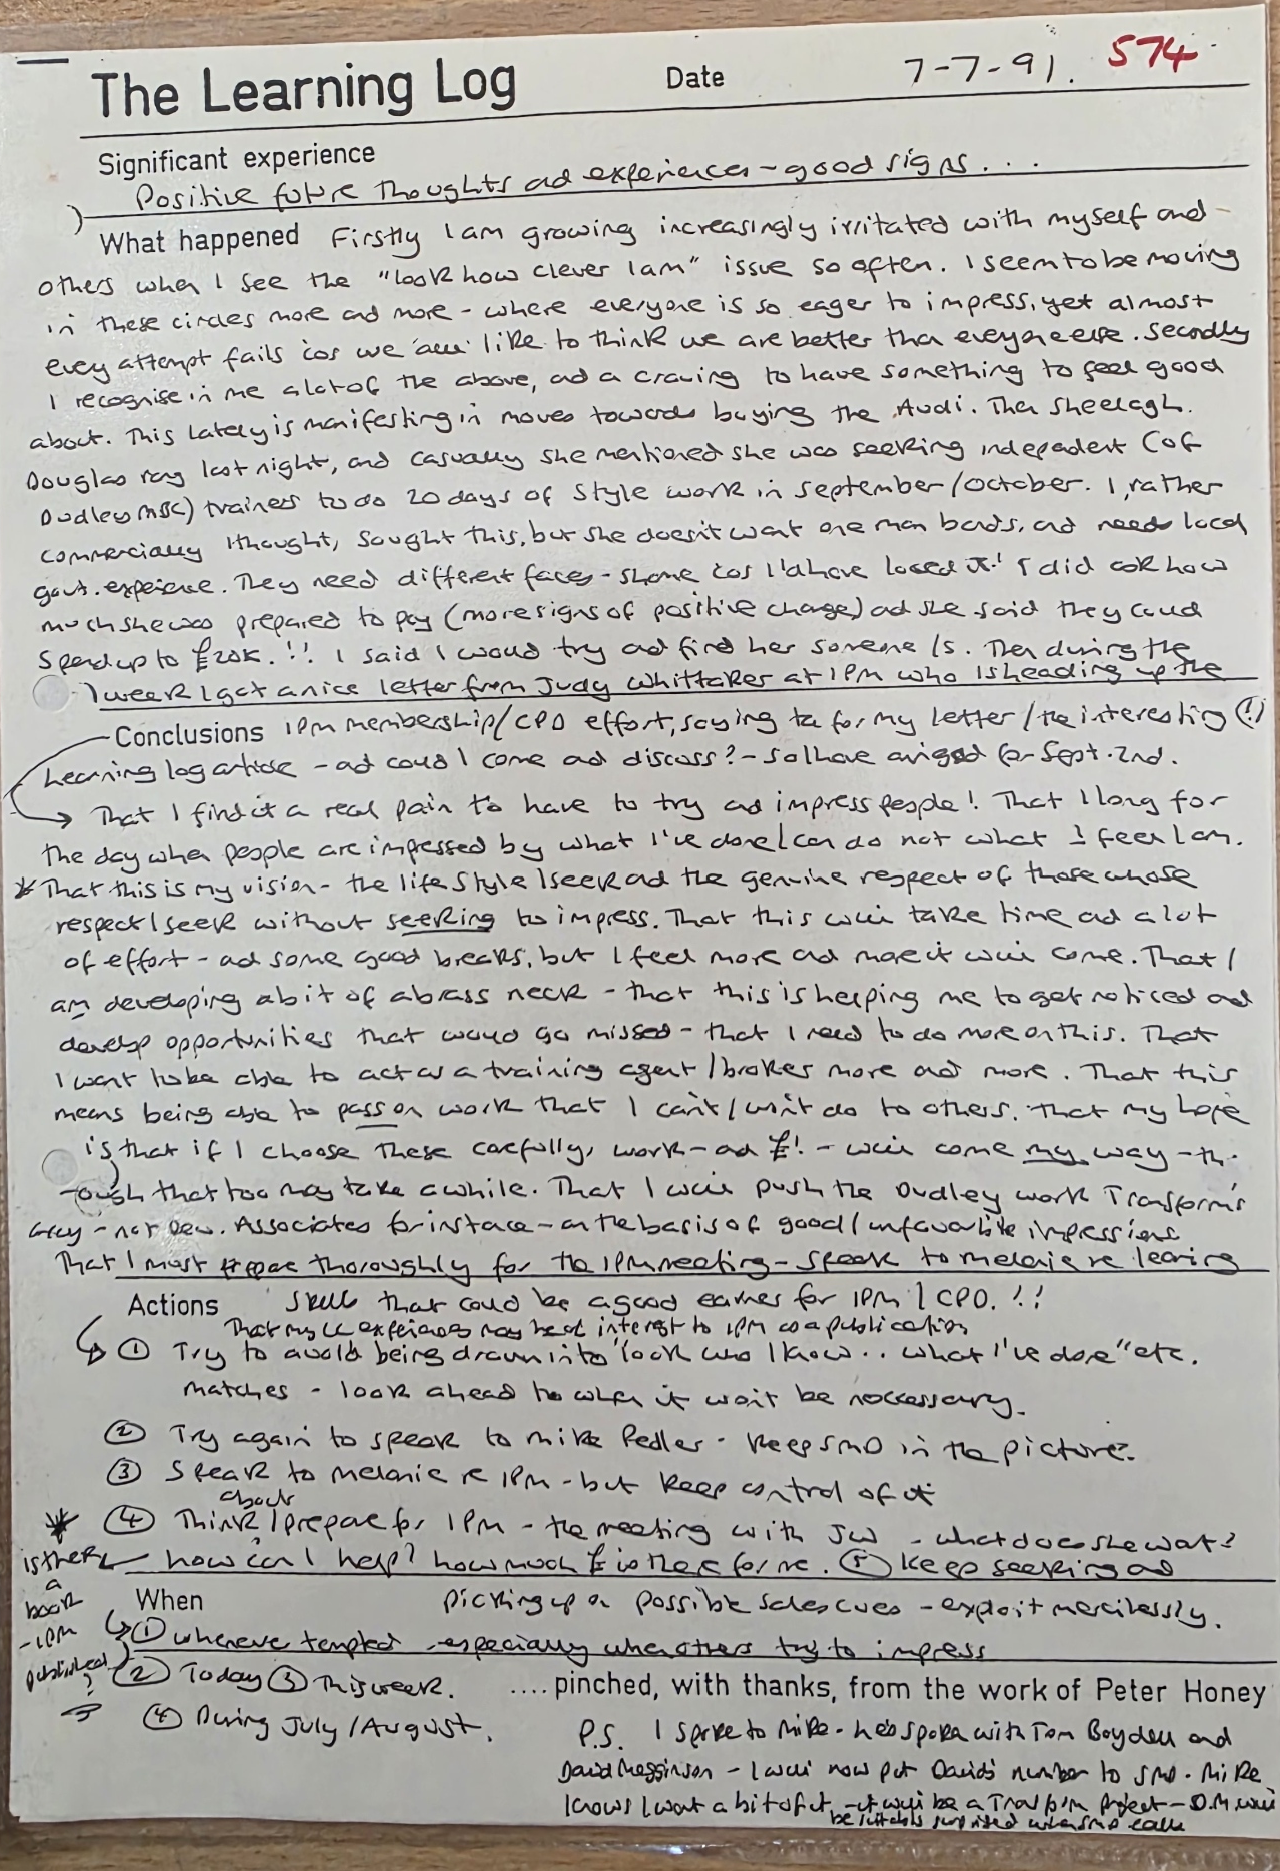 The Learning Log Date 7-7-91. 574
Significant experience
Positive future thoughts ad experiences - good signs ...
What happened Firstly I am growing increasingly irritated with myself and
others when I see the "look how clever I am" issue so often. I seem to be moving
in these circles more and more - where everyone is so eager to impress, yet almost
every attempt fails 'cos we 'all' like to think we are better than everyone else. Secondly
I recognise in me a lot of the above, ad a craving to have something to feel good
about. This lately is manifesting in moves towards buying the Audi. Then Sheelagh
Douglas rang last night, and casually she mentioned she was seeking independent (of
Dudley MBC) trainers to do 20 days of Style work in September/October. I, rather
commercially I thought, sought this, but she doesn't want one man bands, and needs local
govt. experience. They need different faces - shame 'cos I'd have loved it! I did ask how
much she was prepared to pay (more signs of positive change) ad she said they could
spend up to £20K.!!! I said I would try ad find her someone/s. Then during the
week I got a nice letter from Judy Whittaker at IPM who is heading up the
Conclusions IPM membership/CPD effort, saying ta for my letter/the interesting (!)
learning log article - ad could I come ad discuss? - so I have arranged for Sept. 2nd.
That I find it a real pain to have to try ad impress people! That I long for
the day when people are impressed by what I've done/can do not what I feel I am.
* That this is my vision - the life style I seek ad the genuine respect of those whose
respect I seek without seeking to impress. That this will take time ad a lot
of effort - ad some good breaks, but I feel more ad more it will come. That I
am developing a bit of a brass neck - that this is helping me to get noticed ad
develop opportunities that would go missed - that I need to do more on this. That
I want to be able to act as a training agent/broker more ad more. That this
means being able to pass on work that I can't/won't do to others. That my hope
is that if I choose these carefully, work - ad £! - will come my way - th-
-ough that too may take a while. That I will push the Dudley work Transform's
way - not Associates for instance - on the basis of good/unfavourable impressions
That I must prepare thoroughly for the IPM meeting - speak to Melanie re learning
Actions skills that could be a good earner for IPM/CPD.!!
That my experiences may be of interest to IPM as a publication
① Try to avoid being drawn into "look who I know.. what I've done" etc.
matches - look ahead to when it won't be neccessary.
② Try again to speak to Mike Pedler - keep SMD in the picture.
③ Speak to Melanie re IPM - but keep control of it
* ④ Think about/prepare for IPM - the meeting with JW - what does she want?
how can I help? how much £ is there for me. ⑤ Keep seeking ad
is there
a
book
- IPM
published
?
When picking up on possible sales cues - exploit mercilessly.
① whenever tempted - especially when others try to impress
② Today ③ This week. ....pinched, with thanks, from the work of Peter Honey
④ During July/August.
P.S. I spoke to Mike - he's spoken with Tom Boydell and
David Megginson - I will now put David's number to SMD. Mike
knows I want a bit of it - it will be a Transform project - D.M. will
be suitably surprised when SMD calls